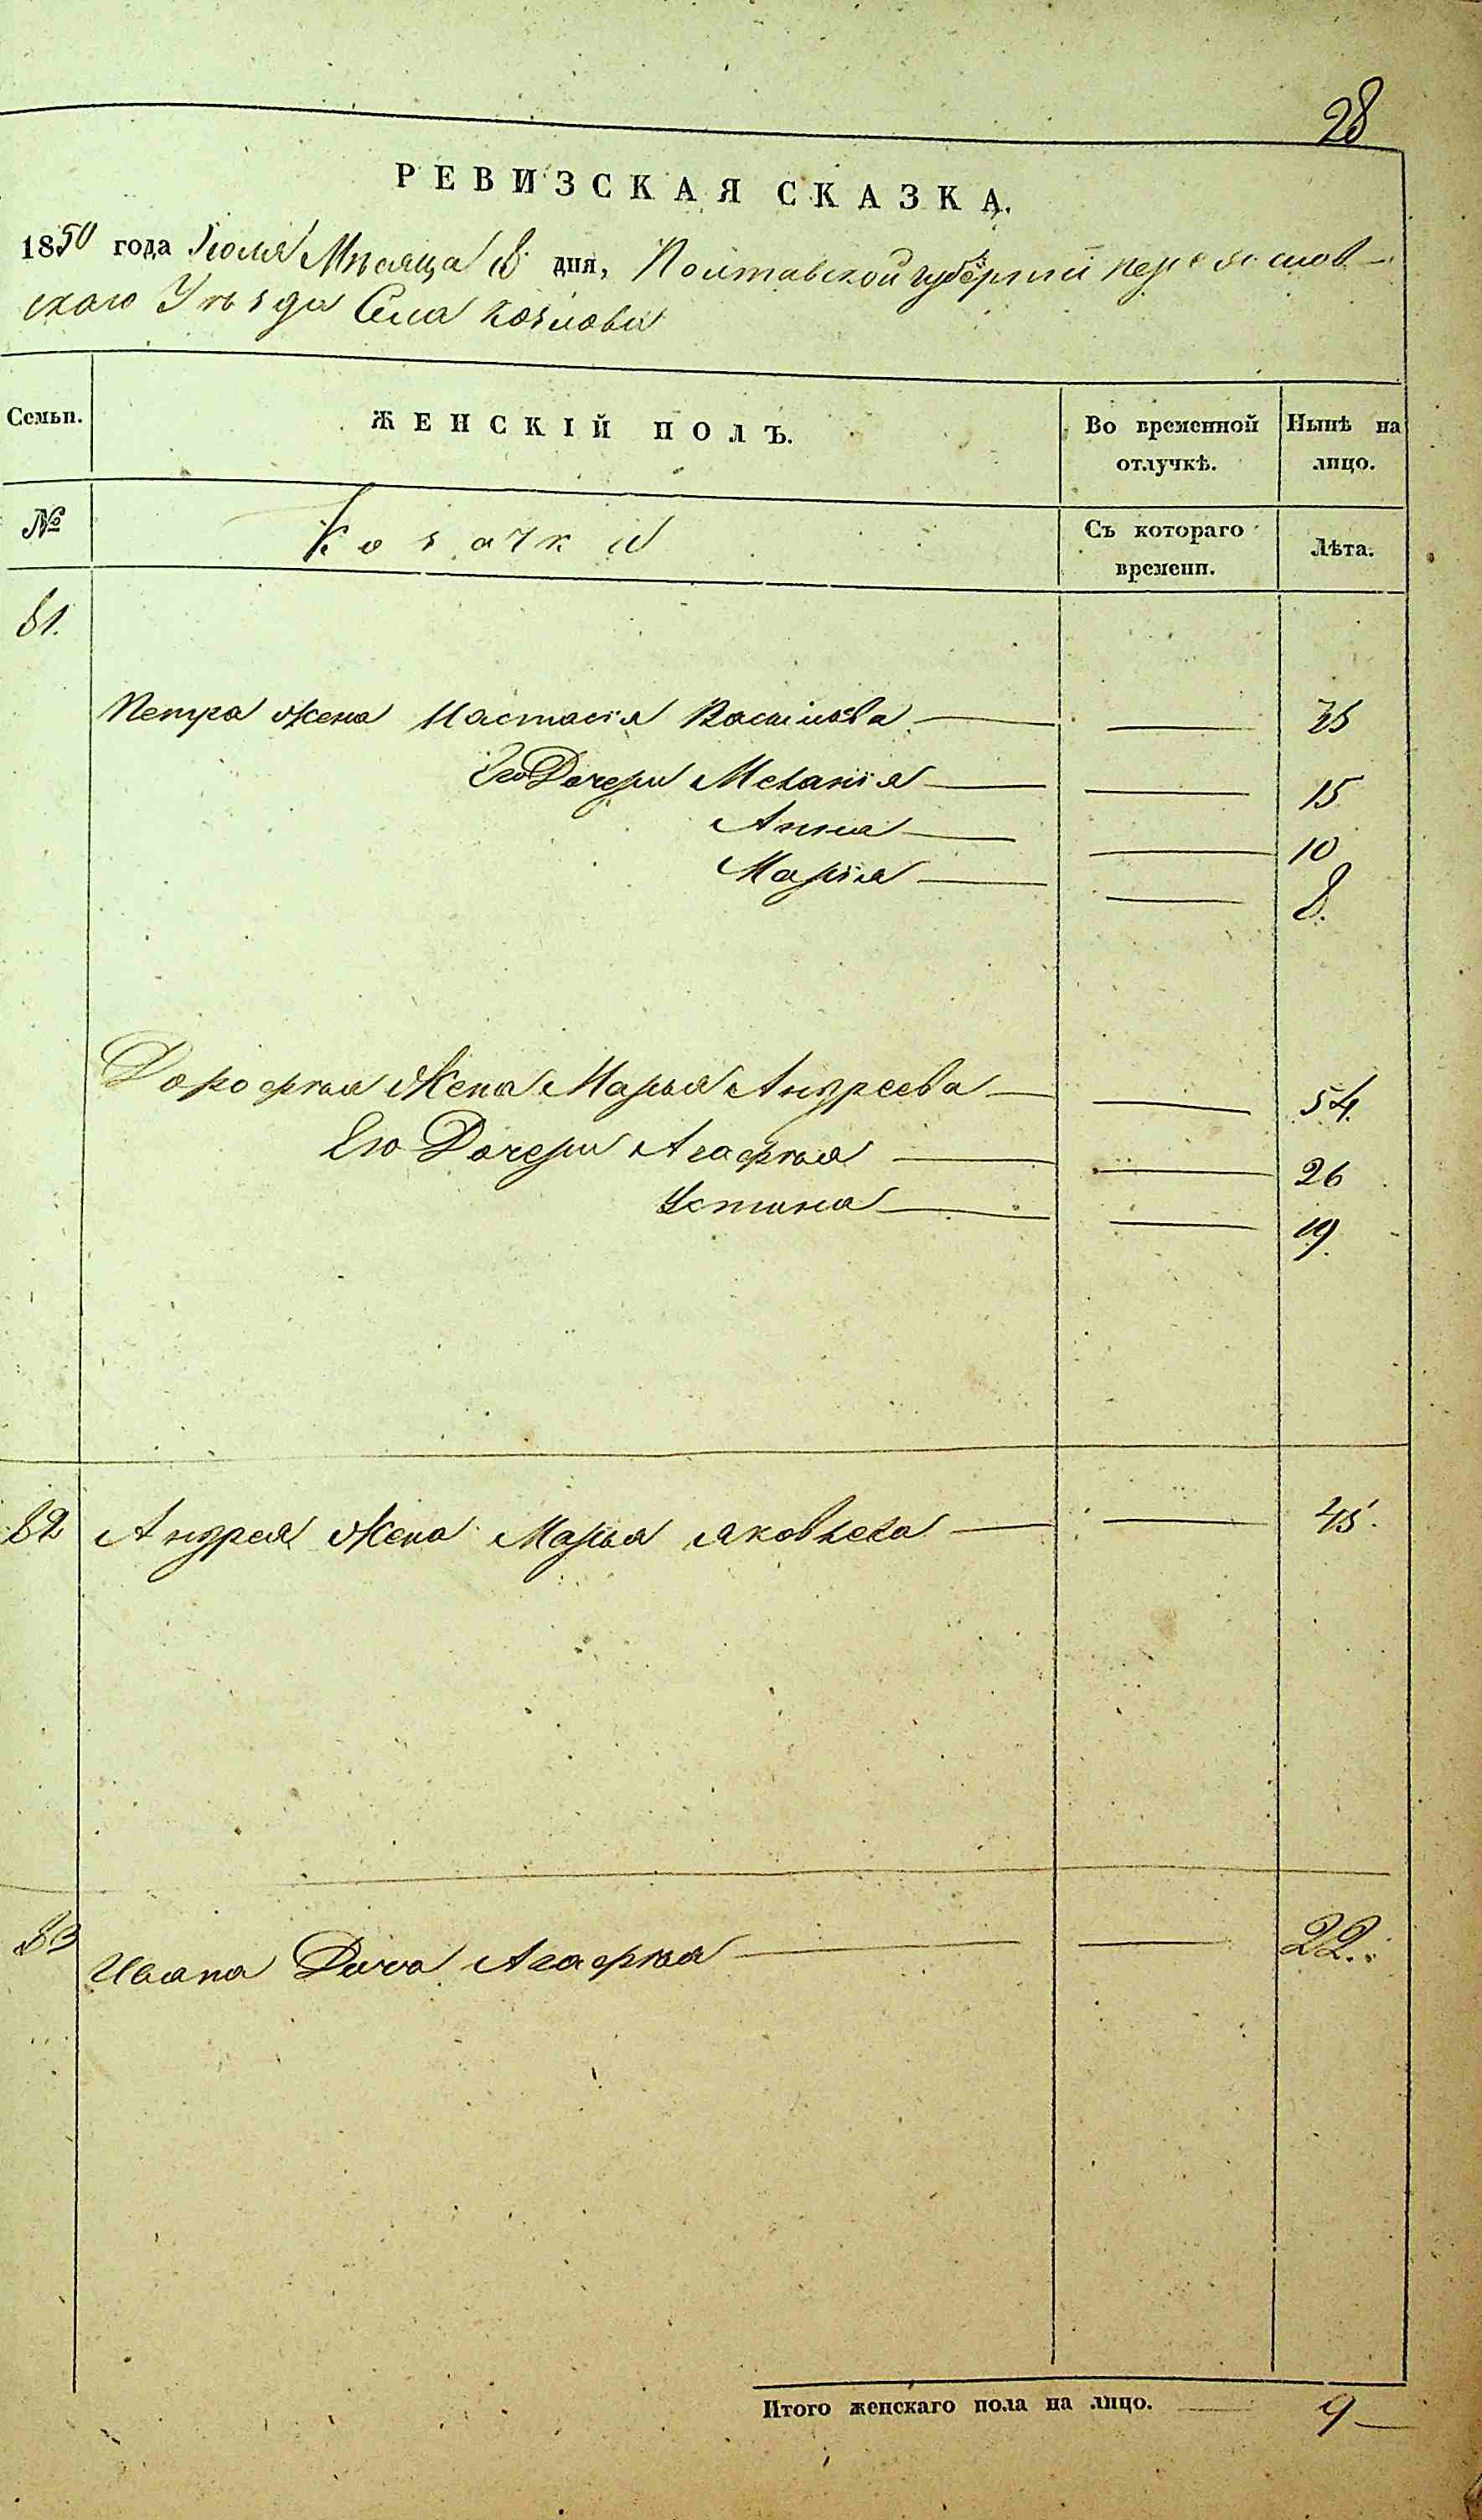 28
РЕВИЗСКАЯ СКАЗКА.
1850 года Іюля Мѣсяца 8 дня, Полтавской губерніи Переяслов-
скаго Уѣзда Села Козлова
Семьи. ЖЕНСКІЙ ПОЛЪ. Во временной отлучкѣ. Нынѣ на лицо.
№ Козачки Съ котораго времени. Лѣта.
81.
Петра жена Настасія Васильева — —
Его Дочери Меланія — — 15
Анна — — 10
Марія — — 8.
Дорофѣя Жена Марья Андреева — — 54.
Его Дочери Агафія — — 26
Устина — — 19.
82 Андрея Жена Марья Яковлева — — 45.
83 Ивана Дочь Агафія — — 22.
Итого женскаго пола на лицо. — 9 —